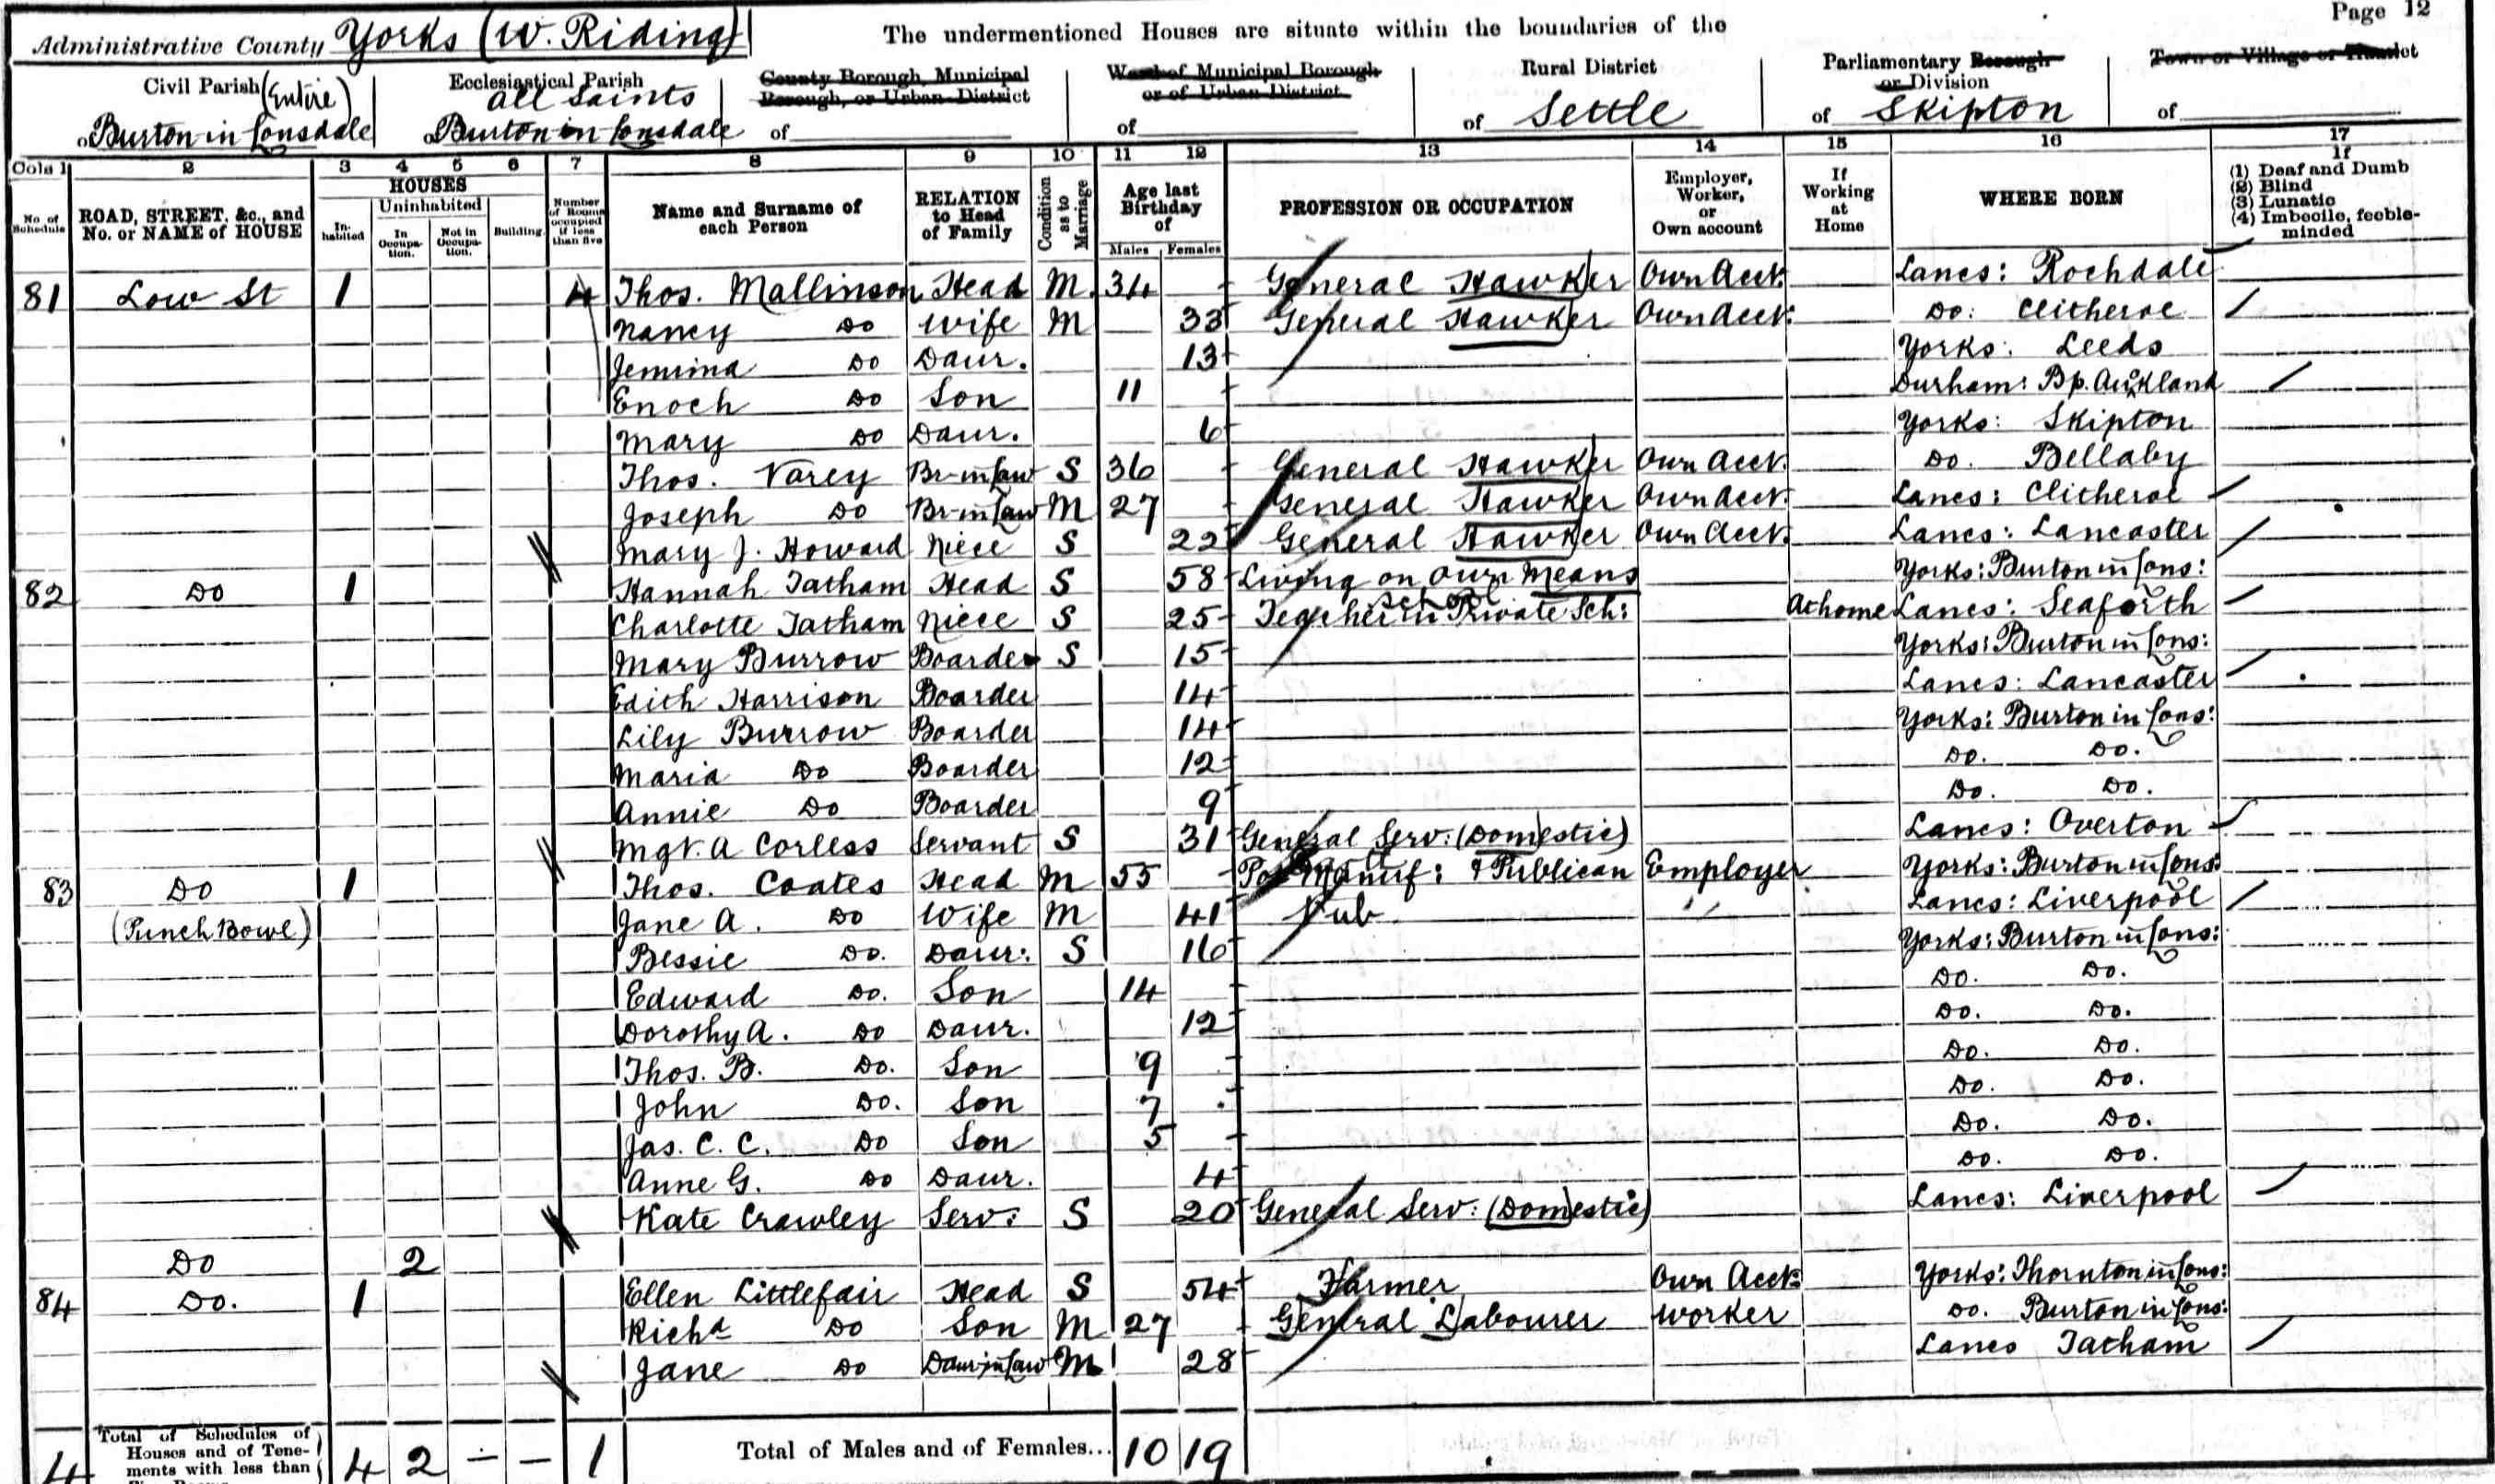 Page 12
Administrative County Yorks (W. Riding)
The undermentioned Houses are situate within the boundaries of the
Civil Parish (Entire) of Burton in Lonsdale
Ecclesiastical Parish All Saints of Burton in Lonsdale
County Borough, Municipal Borough, or Urban District of
Ward of Municipal Borough or of Urban District of
Rural District of Settle
Parliamentary Borough or Division of Skipton
Town or Village or Hamlet of
Cols 1 2 3 4 5 6 7 8 9 10 11 12 13 14 15 16 17
No. of Schedule
ROAD, STREET, &c., and No. or NAME of HOUSE
HOUSES
Inhabited
Uninhabited
In Occupation.
Not in Occupation.
Building.
Number of Rooms occupied if less than five
Name and Surname of each Person
RELATION to Head of Family
Condition as to Marriage
Age last Birthday of
Males Females
PROFESSION OR OCCUPATION
Employer, Worker, or Own account
If Working at Home
WHERE BORN
If
(1) Deaf and Dumb
(2) Blind
(3) Lunatic
(4) Imbecile, feeble-minded
81 Low St 1 4 Thos. Mallinson Head M 34 General Hawker Own Acct. Lancs: Rochdale
Nancy Do Wife M 33 General Hawker Own Acct. Do: Clitheroe
Jemima Do Daur. 13 Yorks: Leeds
Enoch Do Son 11 Durham: Bp. Auckland
Mary Do Daur. 6 Yorks: Skipton
Thos. Varey Br-in-law S 36 General Hawker Own Acct. Do. Bellaby
Joseph Do Br-in-law M 27 General Hawker Own Acct. Lancs: Clitheroe
Mary J. Howard Niece S 22 General Hawker Own Acct. Lancs: Lancaster
82 Do 1 Hannah Tatham Head S 58 Living on Own Means Yorks: Burton in Lons:
Charlotte Tatham Niece S 25 Teacher in Private Sch: School At home Lancs: Seaforth
Mary Burrow Boarder S 15 Yorks: Burton in Lons:
Edith Harrison Boarder 14 Lancs: Lancaster
Lily Burrow Boarder 14 Yorks: Burton in Lons:
Maria Do Boarder 12 Do. Do.
Annie Do Boarder 9 Do. Do.
Mgt. A Corless Servant S 31 General Serv: (Domestic) Lancs: Overton
83 Do 1 Thos. Coates Head M 55 Pot Manuf: & Publican Employer Yorks: Burton in Lons:
(Punch Bowl) Jane A. Do Wife M 41 Pub " Lancs: Liverpool
Bessie Do. Daur: S 16 Yorks: Burton in Lons:
Edward Do. Son 14 Do. Do.
Dorothy A. Do Daur. 12 Do. Do.
Thos. B. Do. Son 9 Do. Do.
John Do. Son 7 Do. Do.
Jas. C. C. Do Son 5 Do. Do.
Anne G. Do Daur. 4 Do. Do.
Kate Crawley Serv: S 20 General Serv: (Domestic) Lancs: Liverpool
Do 2
84 Do. 1 Ellen Littlefair Head S 54 Farmer Own Acct: Yorks: Thornton in Lons:
Richd Do Son M 27 General Labourer Worker Do. Burton in Lons:
Jane Do Daur-in-law M 28 Lancs Tatham
4 Total of Schedules of Houses and of Tenements with less than 4 2 — — 1 Total of Males and of Females... 10 19